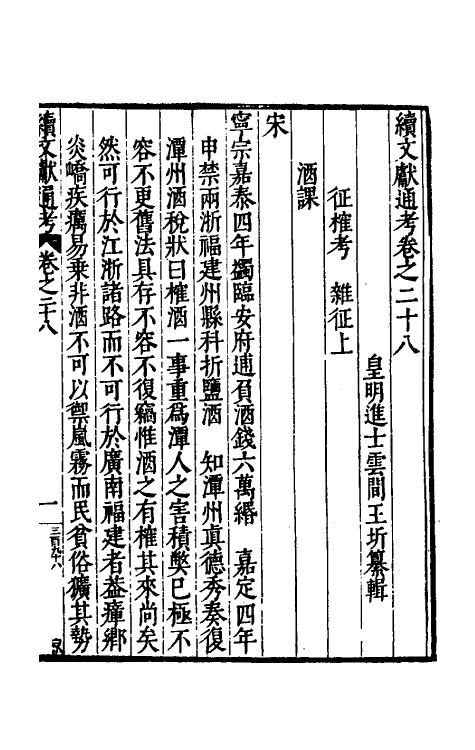 續文獻通考卷之二十八
皇明進士雲間王圻纂輯
征榷考　雜征上
酒課
宋
寧宗嘉泰四年蠲臨安府逋負酒錢六萬緡　嘉定四年
申禁兩浙福建州縣科折鹽酒　知潭州眞德秀奏復
潭州酒稅狀曰榷酒一事重爲潭人之害積弊已極不
容不更舊法具存不容不復竊惟酒之有榷其來尚矣
然可行於江浙諸路而不可行於廣南福建者葢瘴鄉
炎嶠疾癘易乗非酒不可以禦嵐霧而民貧俗獷其勢
續文獻通考　卷之二十八　一　三百九十六